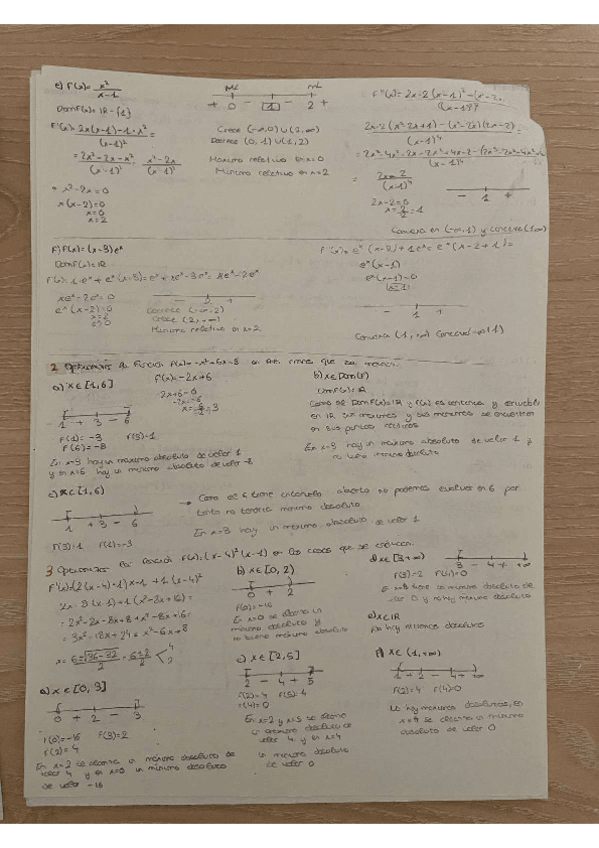 e) f(x) = x²/x-1
Dom f(x) = ℝ - {1}
f'(x) = 2x(x-1) - 1·x² / (x-1)² =
= 2x² - 2x - x² / (x-1)² = x² - 2x / (x-1)²
= x² - 2x = 0
x(x-2) = 0
x = 0
x = 2
+ 0 - 1 - 2 +
Crece (-∞,0) ∪ (2,∞)
Decrece (0,1) ∪ (1,2)
Maximo relativo en x=0
Minimo relativo en x=2
2x-2 / (x-1)⁴
2x-2=0
x = 2/2 = 1
- 1 +
Convexa en (-∞,1) y concava (1,∞)
F) f(x) = (x-3)eˣ
Dom f(x) = ℝ
f'(x) = 1·eˣ + eˣ(x-3) = eˣ + xeˣ - 3eˣ = xeˣ - 2eˣ
xeˣ - 2eˣ = 0
eˣ(x-2) = 0
x = 2
Decrece (-∞,2)
Crece (2,+∞)
Minimo relativo en x=2
f''(x) = eˣ(x-2) + 1·eˣ = eˣ(x-2+1) =
eˣ(x-1)
eˣ(x-1) = 0
x = 1
- 1 +
2 Optimizar la función f(x) = -x²+6x-8 en
a) x ∈ [1,6]
f'(x) = -2x+6
-2x+6=0
-2x=-6
= 3
1 + 3 - 6
f(1) = -3 f(3) = 1
f(6) = -8
En x=3 hay un maximo absoluto de valor 1
y en x=6 hay un minimo absoluto de valor -8
b) x ∈ Dom(f)
Dom f(x) = ℝ
Como se Dom f(x) = ℝ y f(x) es continua y derivable
en ℝ sus maximos y sus minimos se encuentran
en sus puntos criticos
En x=3 hay un maximo absoluto de valor 1 y
no tiene minimo absoluto
c) x ∈ [1,6)
1 + 3 - 6
f(3) = 1 f(1) = -3
→ Como el 6 tiene intervalo abierto no podemos evaluar en 6 por
tanto no tendria minimo absoluto
En x=3 hay un maximo absoluto de valor 1
3 Optimizar la función f(x) = (x-4)²(x-1) en los casos que se indican.
f'(x) = 2(x-4)·1(x-1) + 1(x-4)²
= 2x² - 2x - 8x + 8 + x² - 8x + 16 =
= 3x² - 18x + 24 = x² - 6x + 8
x = 6±√36-32 / 2 = 6±2 / 2 < 4
2
a) x ∈ [0,3]
0 + 2 - 3
f(0) = -16 f(3) = 2
f(2) = 4
En x=2 se alcanza un maximo absoluto de
valor 4 y en x=0 un minimo absoluto
de valor -16
b) x ∈ [0,2)
0 + 2
f(0) = -16
En x=0 se alcanza un
minimo absoluto y
no tiene maximo absoluto
c) x ∈ [2,5]
2 - 4 + 5
f(2) = 4 f(5) = 4
f(4) = 0
En x=2 y x=5 se alcanza
un maximo absoluto de
valor 4 y en x=4
un minimo absoluto
de valor 0
d) x ∈ [3,+∞)
3 - 4 + +∞
f(3) = 2 f(4) = 0
minimo absoluto de
valor 0 y no hay maximo absoluto
e) x ∈ ℝ
No hay maximos absolutos
f) x ∈ (1,+∞)
1 + 2 - 4 + +∞
f(2) = 4 f(4) = 0
No hay maximos absolutos, en
x=4 se alcanza un minimo
absoluto de valor 0